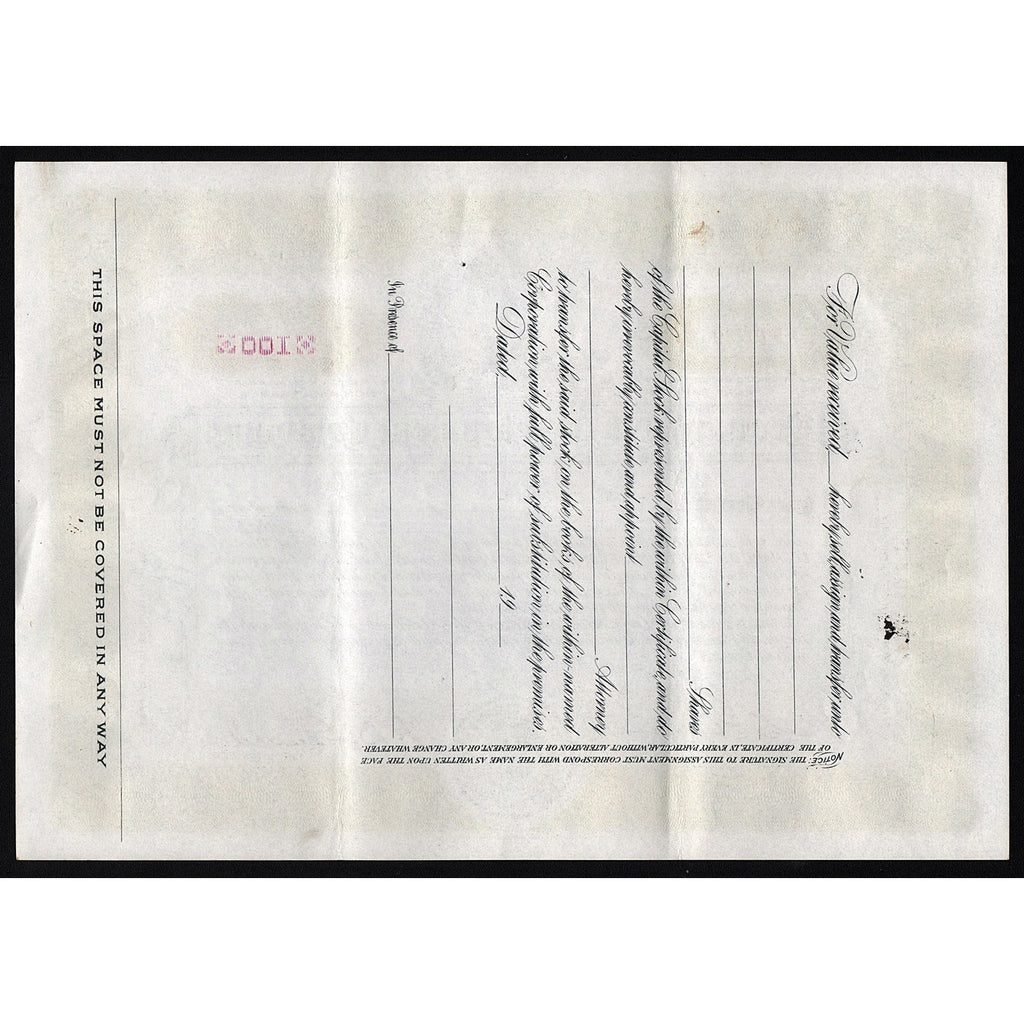 For Value received, hereby sell, assign and transfer unto
Shares
of the Capital Stock represented by the within Certificate, and do
hereby irrevocably constitute and appoint
Attorney
to transfer the said stock on the books of the within-named
Corporation with full power of substitution in the premises.
Dated, 19
In Presence of
NOTICE: THE SIGNATURE TO THIS ASSIGNMENT MUST CORRESPOND WITH THE NAME AS WRITTEN UPON THE FACE
OF THE CERTIFICATE, IN EVERY PARTICULAR, WITHOUT ALTERATION OR ENLARGEMENT, OR ANY CHANGE WHATEVER.
100
THIS SPACE MUST NOT BE COVERED IN ANY WAY